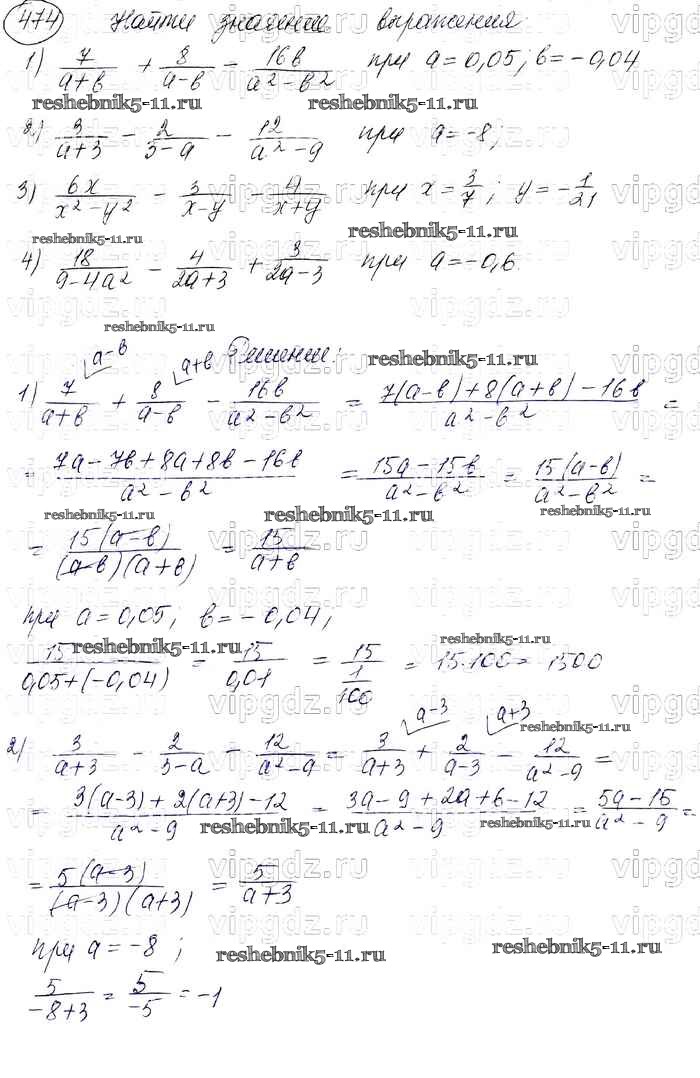 474 Найти значение выражения:
1) 7/(a+b) + 8/(a-b) - 16b/(a²-b²) при a=0,05; b=-0,04
2) 3/(a+3) - 2/(3-a) - 12/(a²-9) при a=-8;
3) 6x/(x²-y²) - 3/(x-y) - 4/(x+y) при x=3/7; y=-1/21
4) 18/(9-4a²) - 4/(2a+3) + 3/(2a-3) при a=-0,6.
Решение:
a-b a+b
1) 7/(a+b) + 8/(a-b) - 16b/(a²-b²) = (7(a-b)+8(a+b)-16b)/(a²-b²) =
= (7a-7b+8a+8b-16b)/(a²-b²) = (15a-15b)/(a²-b²) = 15(a-b)/(a²-b²) =
= 15(a-b)/((a-b)(a+b)) = 15/(a+b)
при a=0,05; b=-0,04;
15/(0,05+(-0,04)) = 15/0,01 = 15/(1/100) = 15·100 = 1500
a-3 a+3
2) 3/(a+3) - 2/(3-a) - 12/(a²-9) = 3/(a+3) + 2/(a-3) - 12/(a²-9) =
= (3(a-3)+2(a+3)-12)/(a²-9) = (3a-9+2a+6-12)/(a²-9) = (5a-15)/(a²-9) =
= 5(a-3)/((a-3)(a+3)) = 5/(a+3)
при a=-8;
5/(-8+3) = 5/(-5) = -1
reshebnik5-11.ru
vipgdz.ru